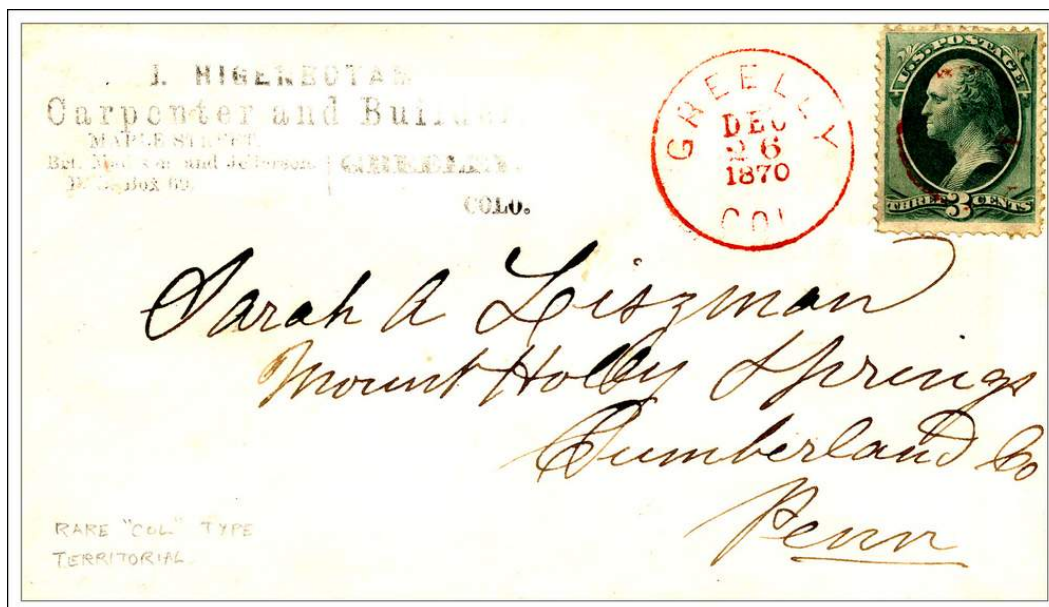 J. HIGENBOTAM
Carpenter and Builder,
MAPLE STREET.
Bet. Madison and Jefferson.
P. O. Box 69.
GREELEY.
COLO.
GREELLY
DEC
26
1870
COL
U.S. POSTAGE
THREE 3 CENTS
Sarah A Liszman
Mount Holly Springs
Cumberland Co
Penn
RARE "COL" TYPE
TERRITORIAL